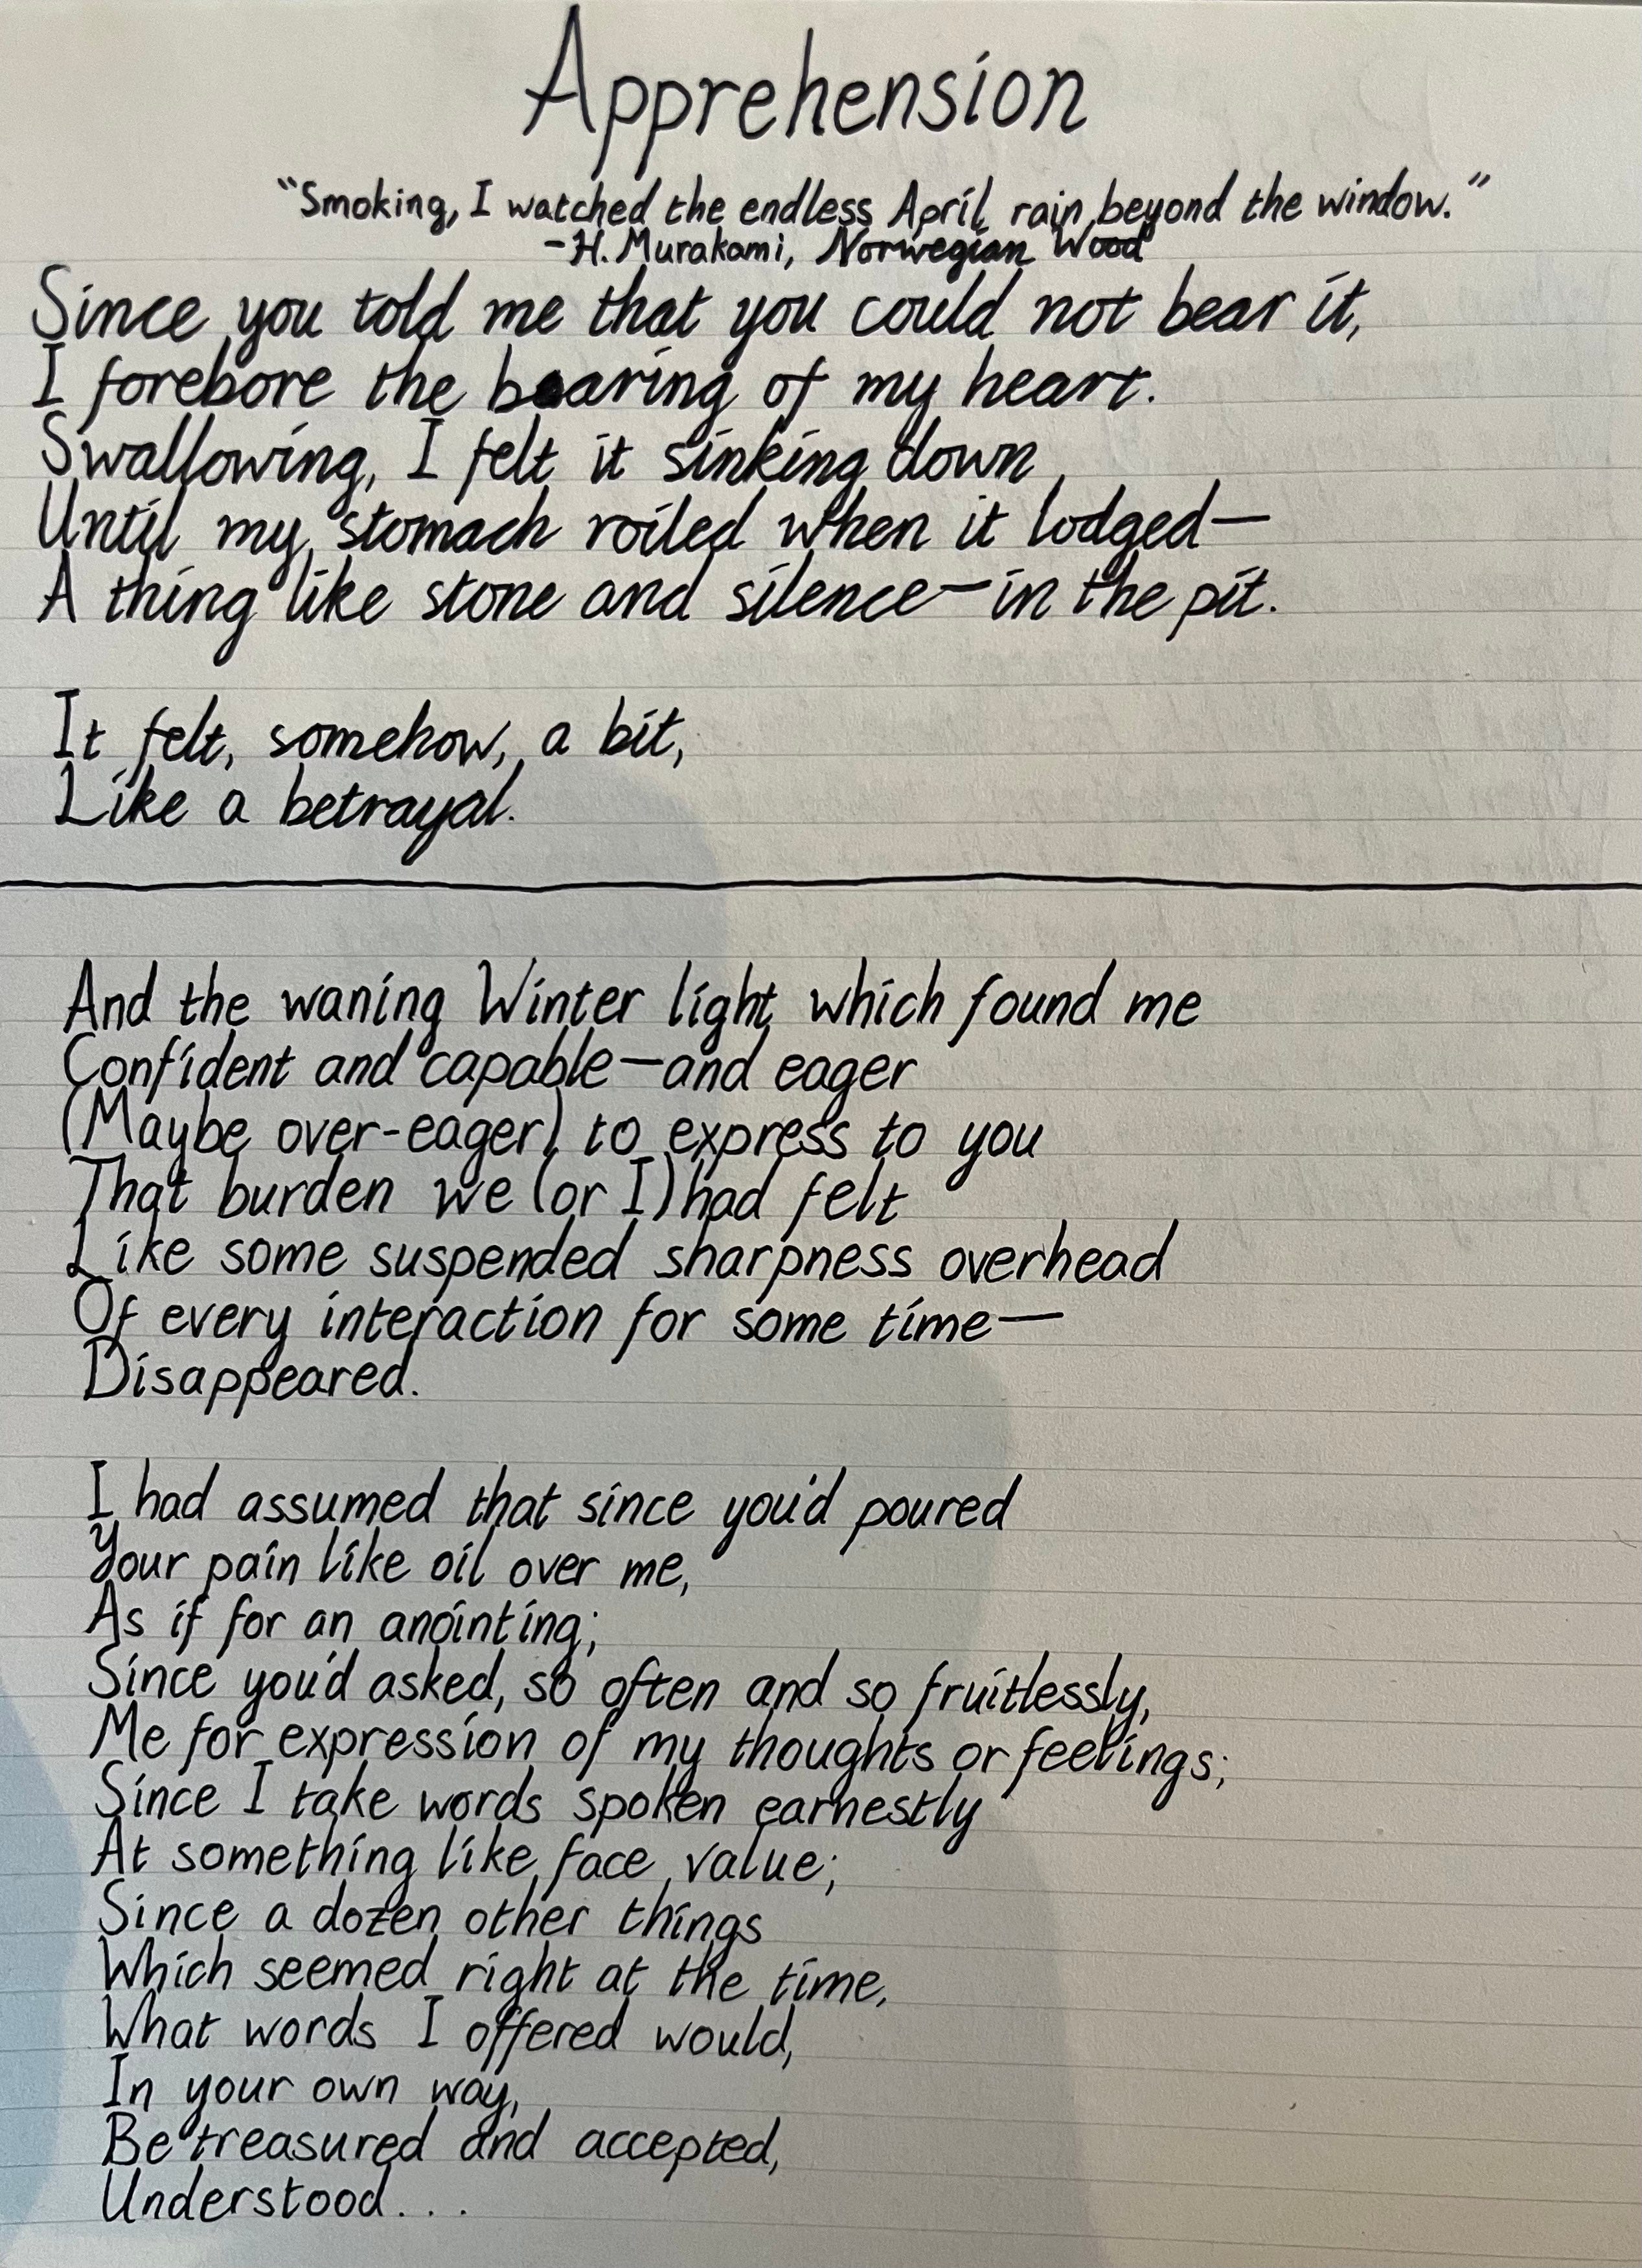 Apprehension
"Smoking, I watched the endless April rain beyond the window."
-H. Murakami, Norwegian Wood
Since you told me that you could not bear it,
I forebore the bearing of my heart.
Swallowing, I felt it sinking down
Until my stomach roiled when it lodged—
A thing like stone and silence—in the pit.
It felt, somehow, a bit,
Like a betrayal.
And the waning Winter light which found me
Confident and capable—and eager
(Maybe over-eager) to express to you
That burden we (or I) had felt
Like some suspended sharpness overhead
Of every interaction for some time—
Disappeared.
I had assumed that since you'd poured
Your pain like oil over me,
As if for an anointing;
Since you'd asked, so often and so fruitlessly,
Me for expression of my thoughts or feelings;
Since I take words spoken earnestly
At something like face value;
Since a dozen other things
Which seemed right at the time,
What words I offered would,
In your own way,
Be treasured and accepted,
Understood...